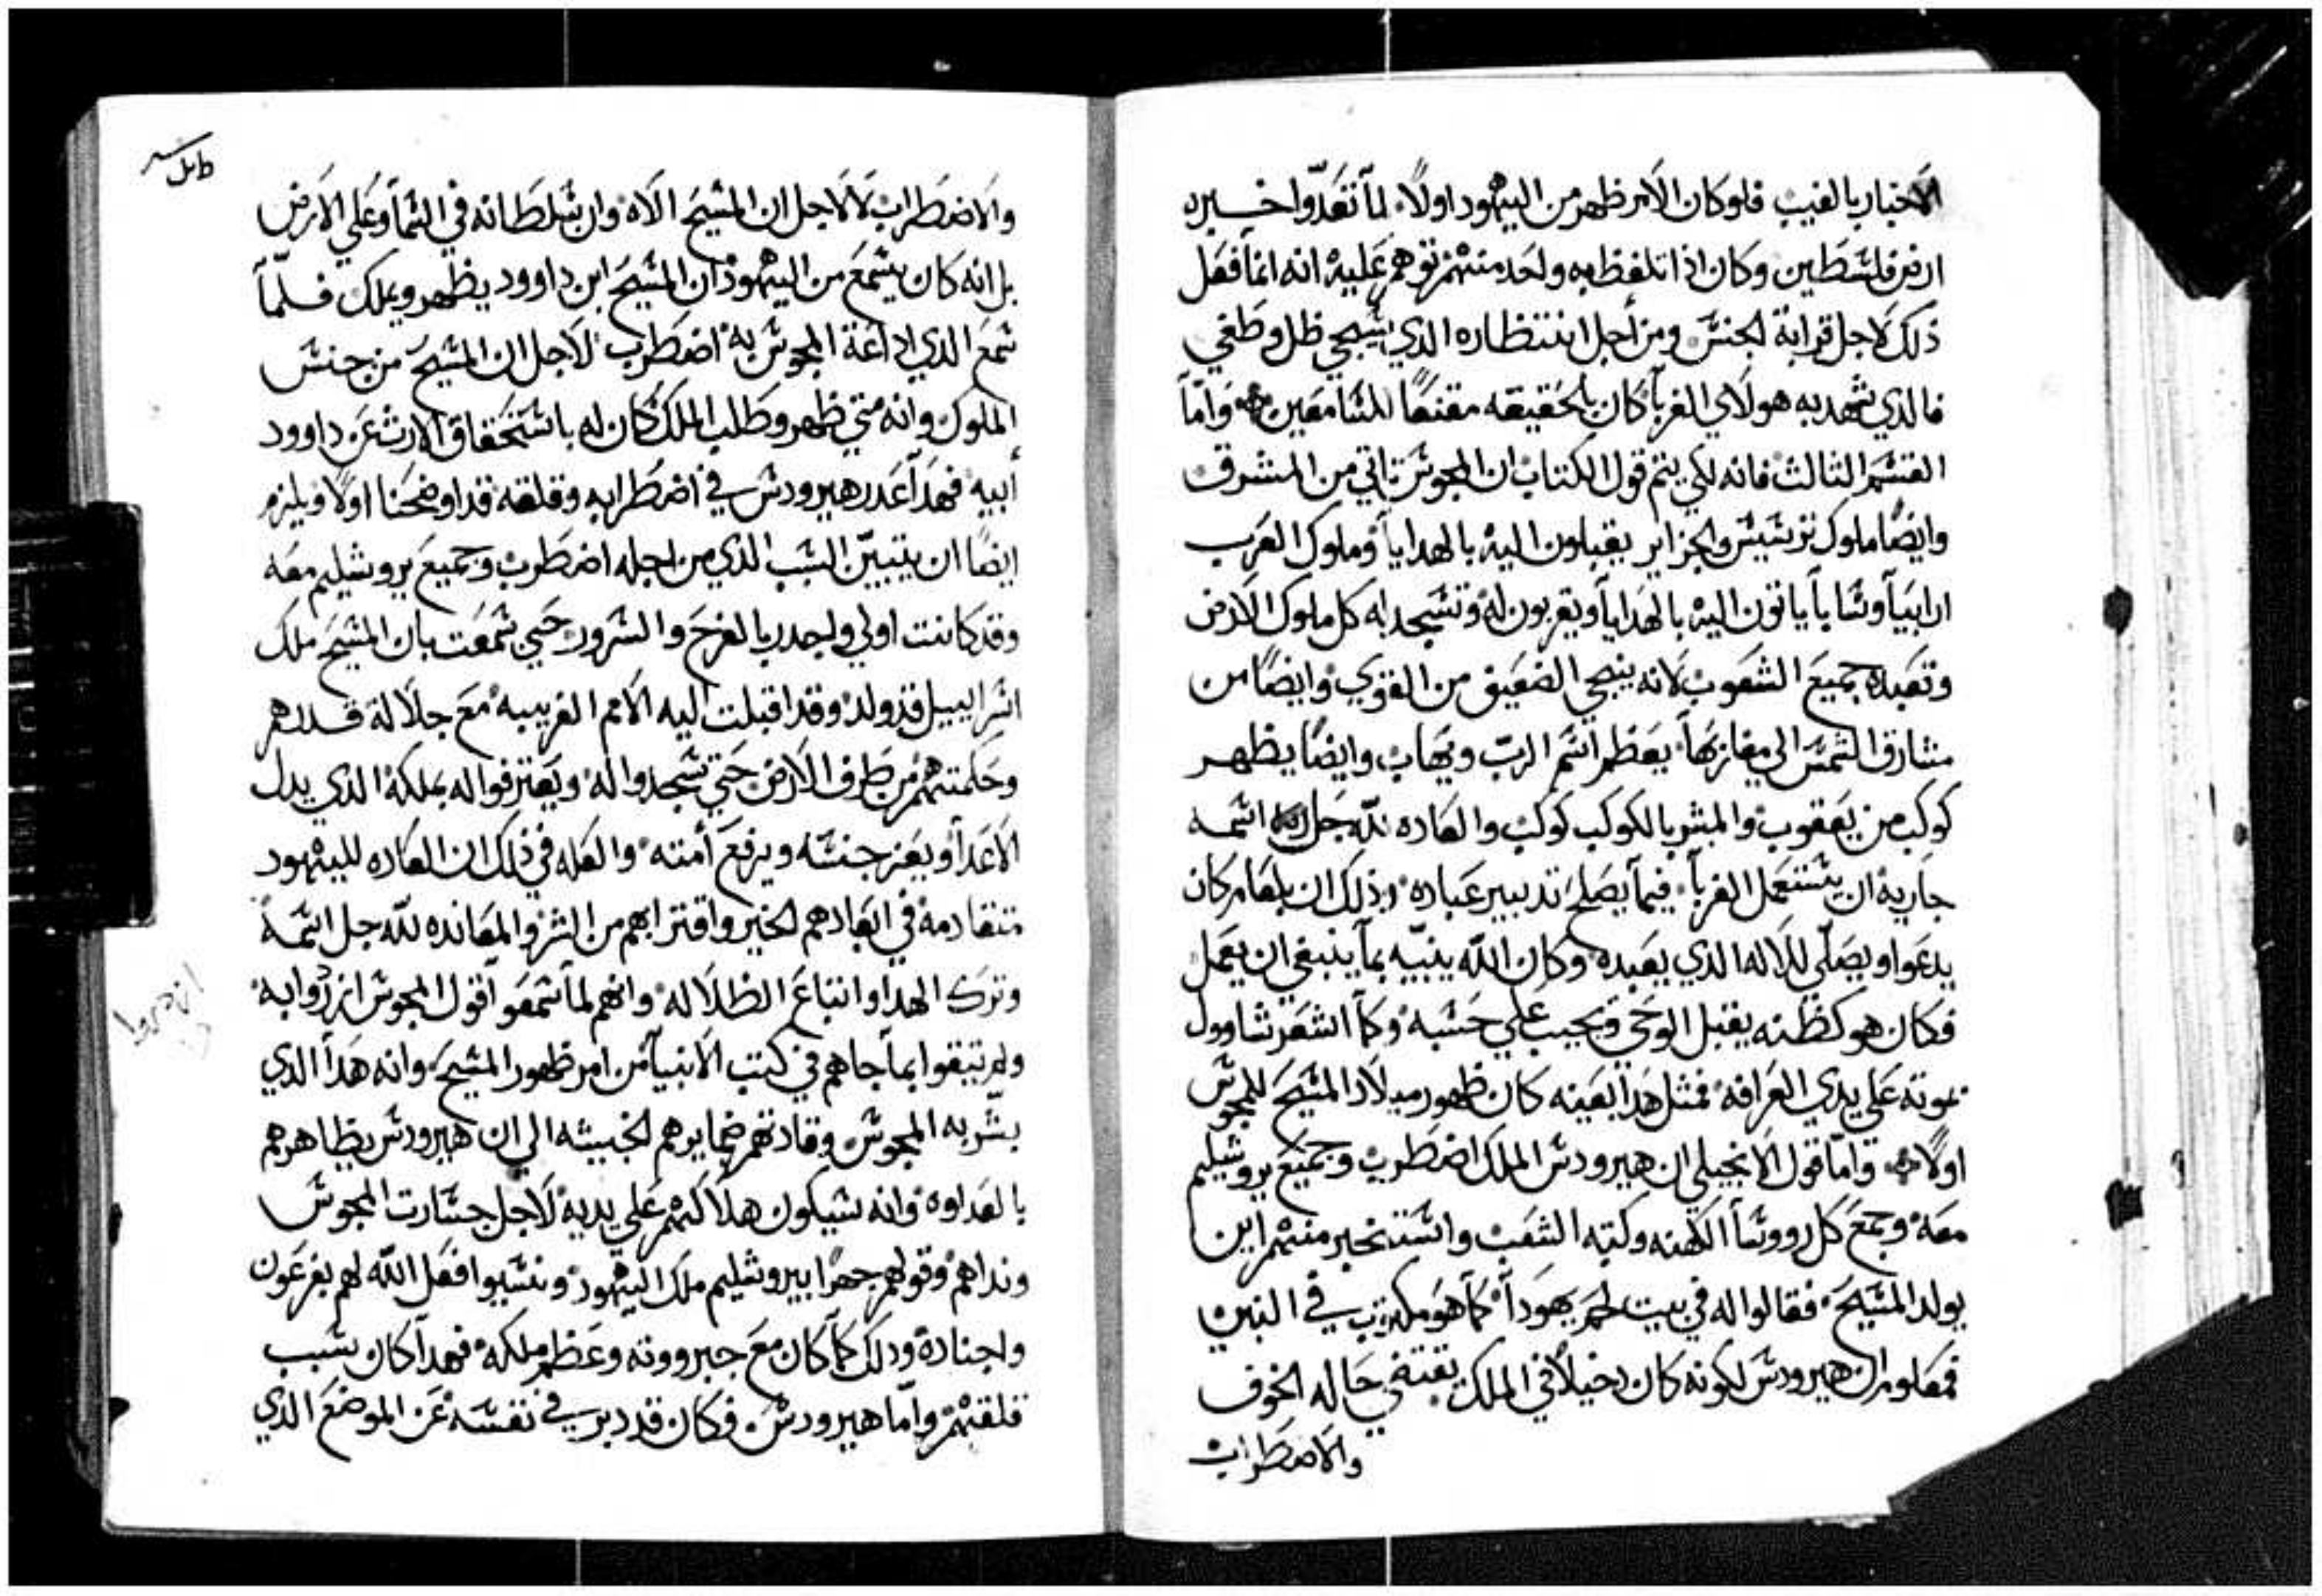 الاخبار بالغيب فلو كان الامر ظهر من اليهود اولاً لما تعدّوا خبره
ارض فلسطين وكان اذا تلفظ به واحد منهم توهم عليه انه انما فعل
ذلك لاجل قرابة الجنس ومن أجل انتظاره الذي سيجي ظل وطغي
فالذي شهد به هولاي الغربا كان بالحقيقه مقنعاً للسامعين واما
القسم الثالث فانه لكي يتم قول الكتاب ان المجوس تاتي من المشرق
وايضاً ملوك ترسيس والجزاير يقبلون اليه بالهدايا وملوك العرب
ارابيا وسابا ياتون اليه بالهدايا ويقربون له وتسجد له كل ملوك الارض
وتعبده جميع الشعوب لانه ينجي الضعيف من القوي وايضاً من
مشارق الشمس الي مغاربها يعظم اسم الرب ويهاب وايضاً يظهر
كوكب من يعقوب والمبشر بالكوكب كوكب والعاده لله جل اسمه
جاريه ان يستعمل الغربا فيما يصلح تدبير عباده وذلك ان بلعام كان
يدعوا ويصلّي للاله الذي يعبده وكان الله ينبيه بما ينبغي ان يعمل
فكان هو كظنه يقبل الوحي ويجيب علي حسبه وكما اشعر شاوول
بموته علي يدي العرافه فمثل هذا بعينه كان ظهور ميلاد المسيح للمجوس
اولاً وامّا قول الانجيلي ان هيرودس الملك اضطرب وجميع يروشليم
معه وجمع كل رووسا الكهنه وكتبه الشعب واستخبر منهم اين
يولد المسيح فقالوا له في بيت لحم يهودا كما هو مكتوب في النبي
فمعلوم ان هيرودس لكونه كان دخيلاً في الملك يقتضي حاله الخوف
والاضطراب
طابل
والاضطراب لا لاجل ان المسيح الاه وان سلطانه في السما وعلي الارض
بل انه كان يسمع من اليهود ان المسيح ابن داوود يظهر ويملك فلمّا
سمع الذي اداعة المجوس به اضطرب لاجل ان المسيح من جنس
الملوك وانه متي ظهر وطلب الملك كان له باستحقاق الارث عن داوود
أبيه فهذا عدر هيرودس في اضطرابه وقلقه قد اوضحنا اولاً ويلزم
ايضاً ان يتبيّن السبب الذي من اجله اضطرب وجميع يروشليم معه
وقد كانت اولي واجدر بالفرح والسرور حتي سمعت بان المسيح ملك
اسراييل قد ولد وقد اقبلت اليه الامم الغريبه مع جلالة قدرهم
وحكمتهم من طرف الارض حتي سجدوا له ويعترفوا له بملكه الذي يدل
الاعدا ويعز جنسه ويرفع أمته والعله في ذلك ان العاده لليهود
متقادمه في ابعادهم الخير واقترابهم من الشر والمعانده لله جل اسمه
وترك الهدا واتباع الظلاله وانهم لما سمعوا قول المجوس ازروا به
ولم يتبقوا بما جاهم في كتب الانبيا من امر ظهور المسيح وانه هذا الذي
بشّر به المجوس وقادتهم ضمايرهم الخبيثه الي ان هيرودس يظاهرهم
بالعداوه وانه سيكون هلاكهم علي يديه لاجل جسارت المجوس
ونداهم وقولهم جهراً بيروشليم ملك اليهود ونسيوا فعل الله لهم بفرعون
واجناده ودلك كما كان مع جبرووته وعظم ملكه فهدا كان سبب
قلقهم وامّا هيرودس فكان قد دبر في نفسه عن الموضع الذي